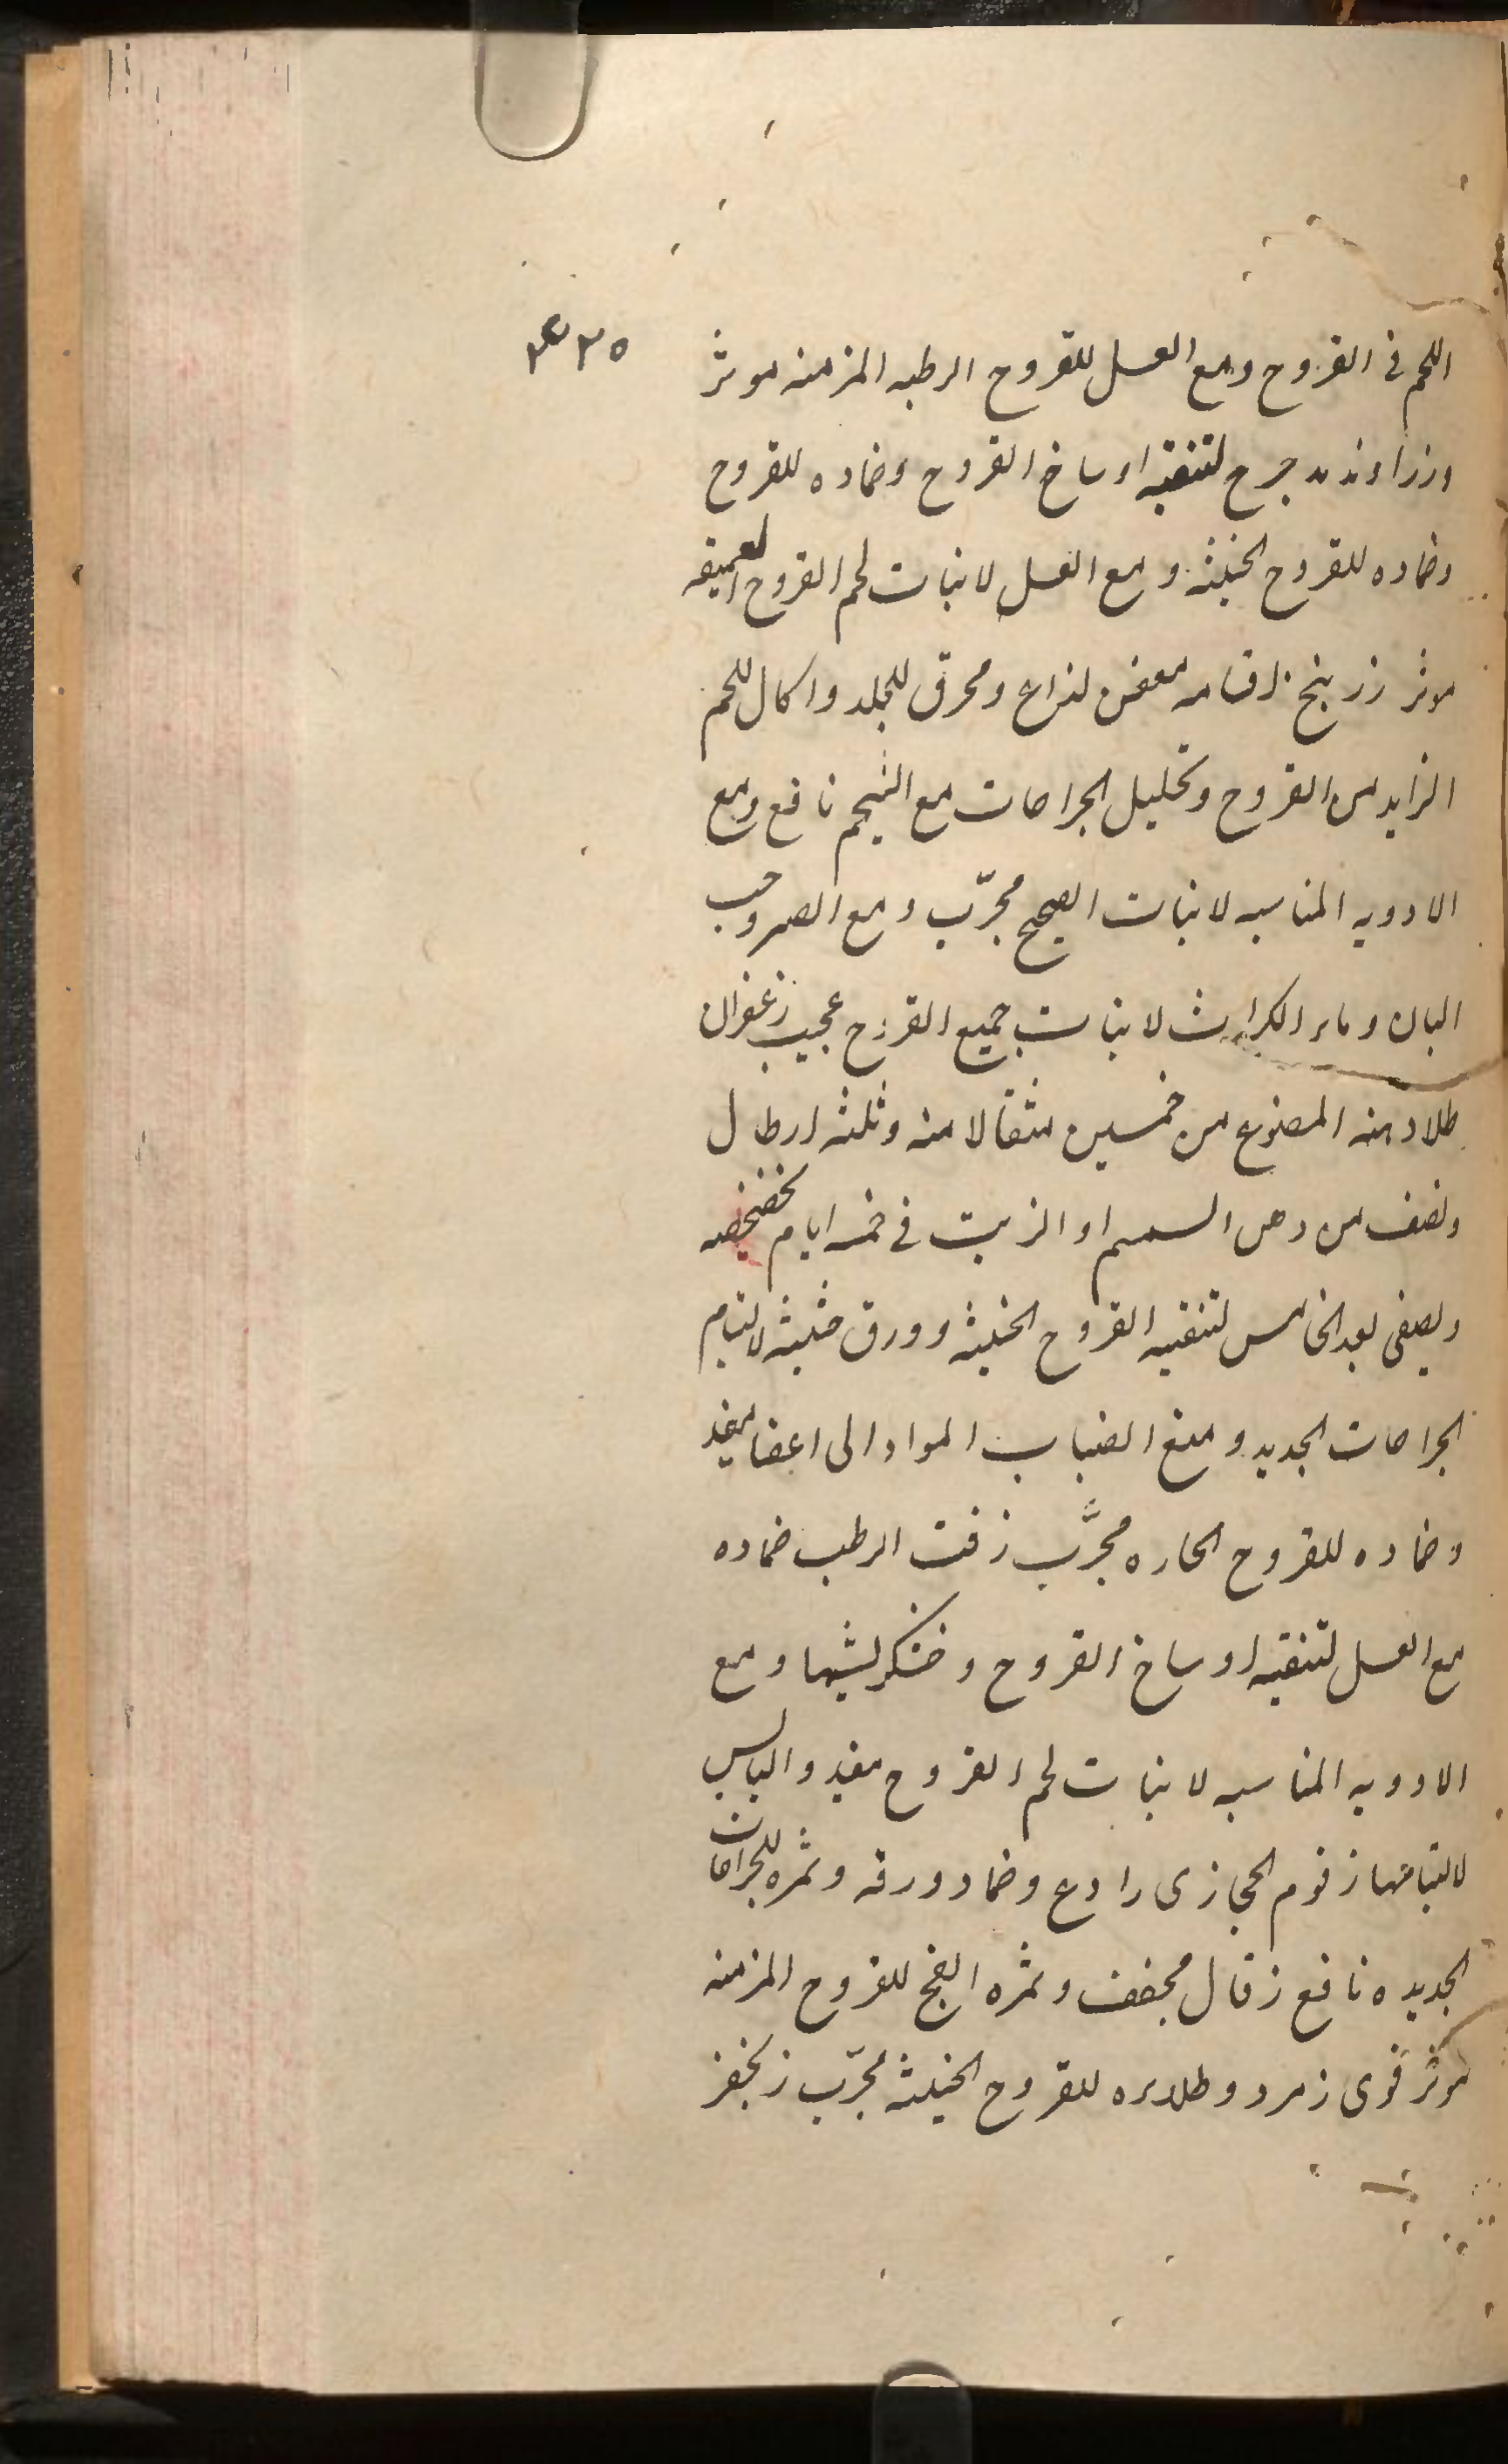 ٣٤٣٥
اللحم فی القروح ومع العسل للقروح الرطبه المزمنه موثر
وزراوند مدحرج لتنقیه اوساخ القروح وضماده للقروح
وضماده للقروح الخبیثه ومع العسل لانبات لحم القروح العمیقه
موثر زرنیخ اقسامه معفن لذاع ومحرق للجلد واکال للحم
الزاید من القروح وتحلیل الجراحات مع الشحم نافع ومع
الادویه المناسبه لانبات اللحم مجرّب ومع الصبر وحب
البان وماء الکراث لانبات جمیع القروح عجیب زعفران
طلاء دهنه المصنوع من خمسین مثقالا منه وثلثه ارطال
ونصف من دهن السمسم او الزیت فی خمسه ایام بخضخضه
ویصفی بعد الخامس لتنقیه القروح الخبیثه وورق خبیثه لالتیام
الجراحات الجدید ومنع انصباب المواد الی اعضا مفید
وضماده للقروح الحاره مجرَّب زفت الرطب ضماده
مع العسل لتنقیه اوساخ القروح وخشکریشیها ومع
الادویه المناسبه لانبات لحم القروح مفید والیابس
لالتیامها زقوم الحجازی رادع وضماد ورقه وثمره للجراحات
الجدیده نافع زقال مجفف وثمره الفج للقروح المزمنه
موثر قوی زمرد وطلاءه للقروح الخبیثه مجرّب زنجفر